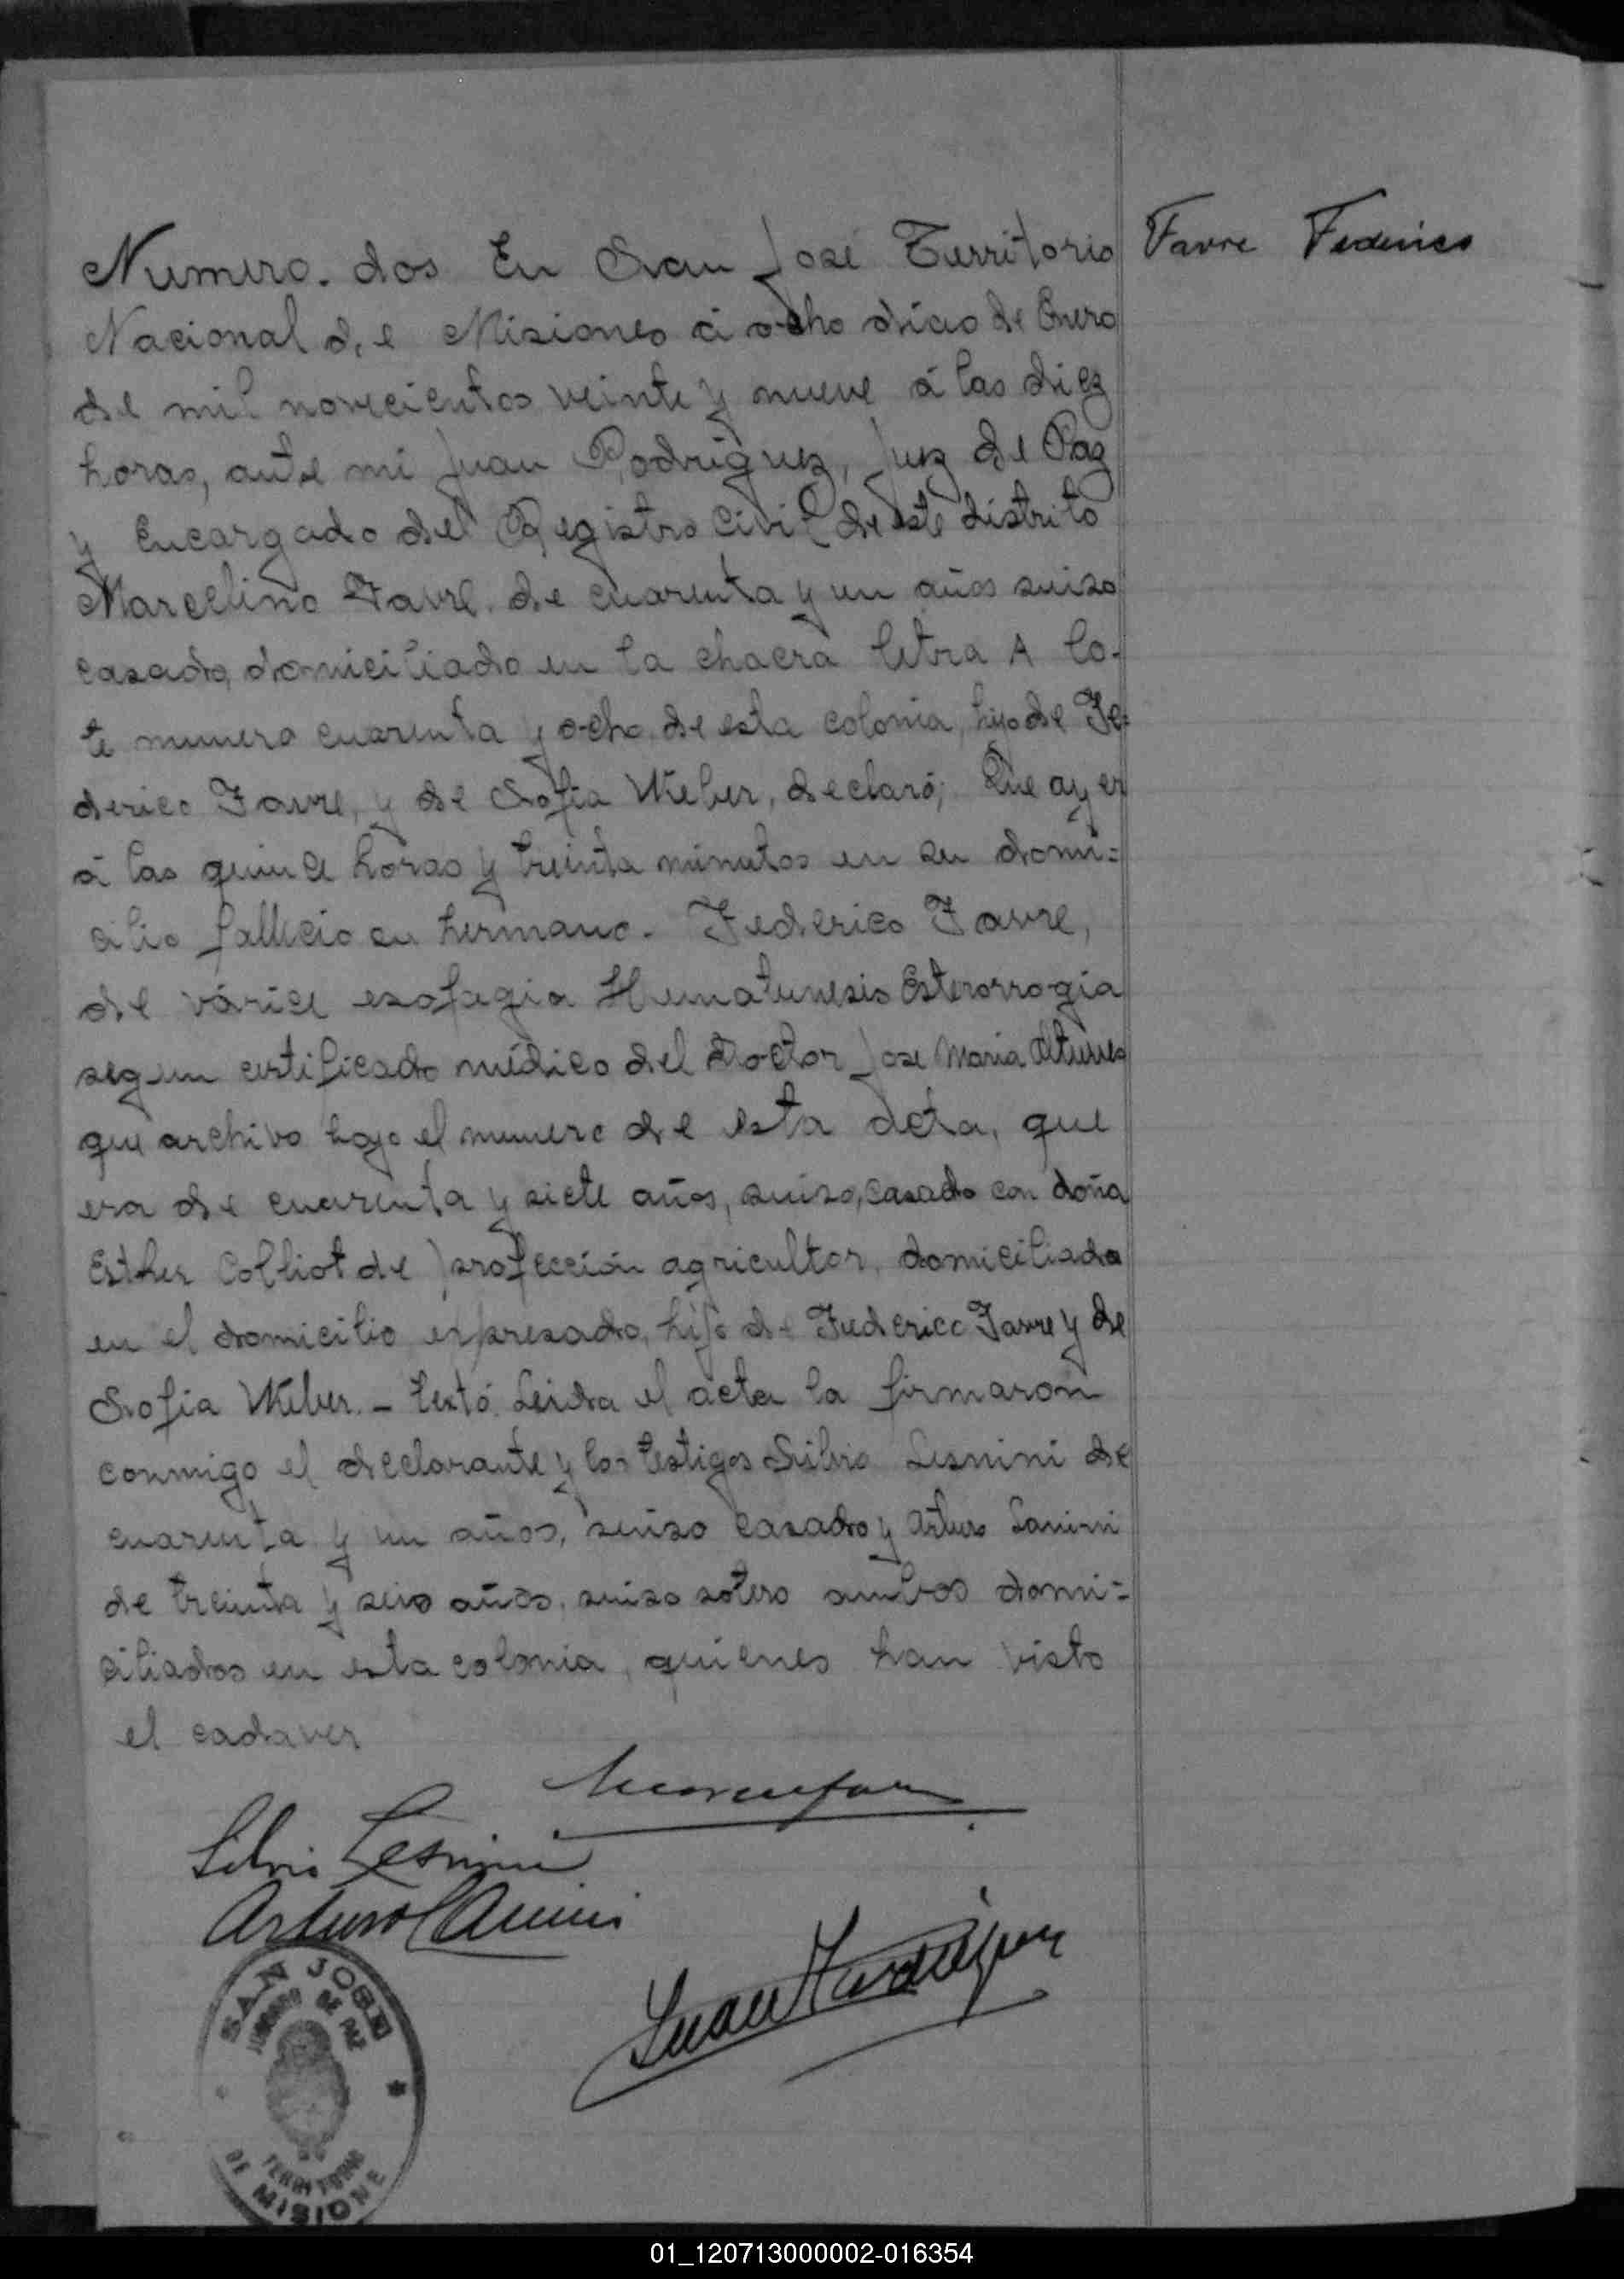 Favre Federico
Numero. dos En San José Territorio
Nacional de Misiones á ocho dias de Enero
de mil novecientos veinte y nueve á las diez
horas, ante mi Juan Rodriguez, Juez de Paz
y Encargado del Registro Civil de este distrito
Marcelino Favre. de cuarenta y un años suizo
casado, domiciliado en la chacra letra A lo-
te numero cuarenta y ocho de esta colonia, hijo de Fe=
derico Favre, y de Sofia Weber, declaró; Que ayer
á las quince horas y treinta minutos en su domi=
cilio fallecio su hermano. Federico Favre,
de várice esofagia Hematemesis Esterorrogia
segun certificado médico del Doctor Jose Maria
que archivo bajo el numero de esta acta, que
era de cuarenta y siete años, suizo, casado con doña
Esther Colliot de profección agricultor, domiciliado
en el domicilio expresado, hijo de Federico Favre y de
Sofia Weber. - Leida el acta la firmaron
conmigo el declarante y los testigos Silvio Lesnini de
cuarenta y un años, suizo casado y Arturo Lanini
de treinta y seis años, suizo sotero ambos domi=
ciliados en esta colonia, quienes han visto
el cadaver
Silvio Lesnini
Arturo Lanini
Juan Rodriguez
SAN JOSE
JUZGADO DE PAZ
TERRITORIO
DE MISIONE
01_120713000002-016354